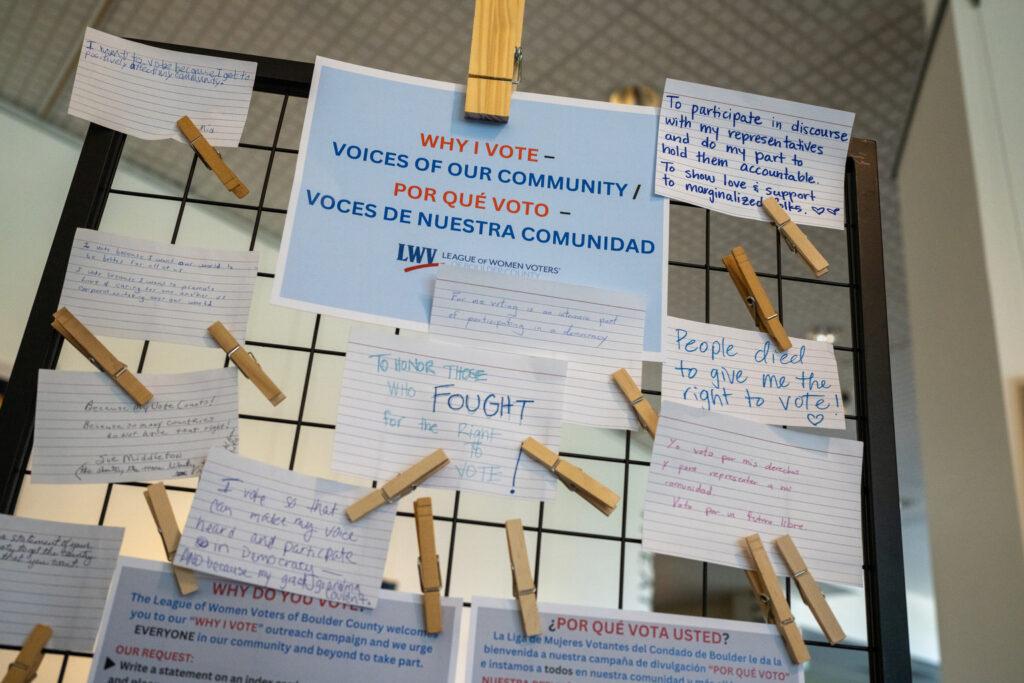 I want to vote because I get to
positively affect my community.
WHY I VOTE –
VOICES OF OUR COMMUNITY /
POR QUÉ VOTO –
VOCES DE NUESTRA COMUNIDAD
LWV LEAGUE OF WOMEN VOTERS®
OF BOULDER COUNTY
To participate in discourse
with my representatives
and do my part to
hold them accountable.
To show love & support
to marginalized folks.
I vote because I want our world to
be better for all of us.
I vote because I want to promote
love & caring for one another, vs
corporations taking over our world
For me voting is an intensive part
of participating in a democracy
People died
to give me the
right to vote!
TO HONOR THOSE
WHO FOUGHT
for the Right
to
VOTE!
Because my Vote Counts!
Because so many countries
do not have that right!
Sue Middleton
Yo voto por mis derechos
y para representar a mi
comunidad.
Voto por un futuro libre
I vote so that I
can make my voice
heard and participate
in Democracy
AND because my
couldn't.
statement of your
to get the country
that you want.
WHY DO YOU VOTE?
The League of Women Voters of Boulder County welcomes
you to our "WHY I VOTE" outreach campaign and we urge
EVERYONE in our community and beyond to take part.
OUR REQUEST:
Write a statement on an index
¿POR QUÉ VOTA USTED?
La Liga de Mujeres Votantes del Condado de Boulder le da la
bienvenida a nuestra campaña de divulgación "POR QUÉ VOTO"
e instamos a todos en nuestra comunidad y más